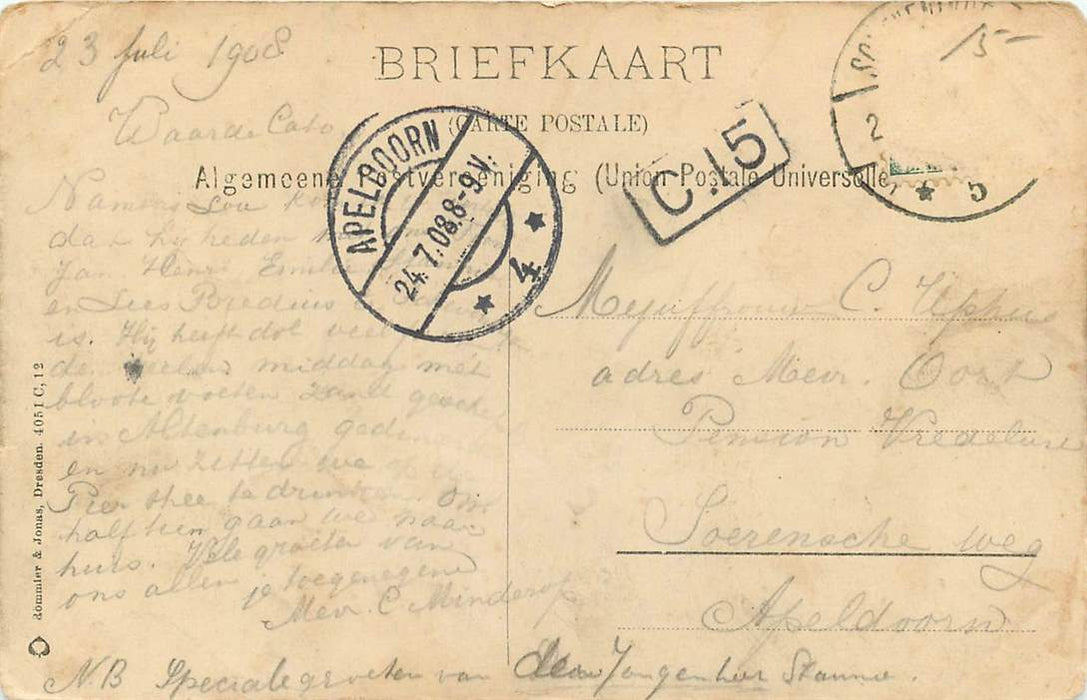 23 Juli 1908
BRIEFKAART
(CARTE POSTALE)
Algemeene Postvereeniging (Union Postale Universelle
15-
APELDOORN
24.7.08.8-9V.
4
C.15
2
5
Waarde Cato
Namens Lou
dat hij heden
Jan. Henri Emilie
en Lies Bredius
is. Hij heeft dol veel
de middag met
bloote voeten zand
in Altenburg
en nu zitten we
Pier thee te drinken. Om
half tien gaan we naar
huis. Vele groeten van
ons allen je toegenegene
Mevr. C Minderop
N.B Speciale groeten van den Jongenheer
Mejuffrouw C. Uphus
adres Mevr. Oort
Pension Vredelust
Soerensche weg
Apeldoorn
dommler & Jonas, Dresden. 4051 C, 12